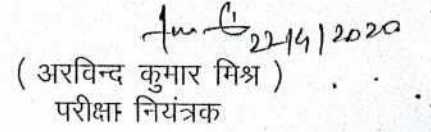 22/4/2020
( अरविन्द कुमार मिश्र )
परीक्षा नियंत्रक